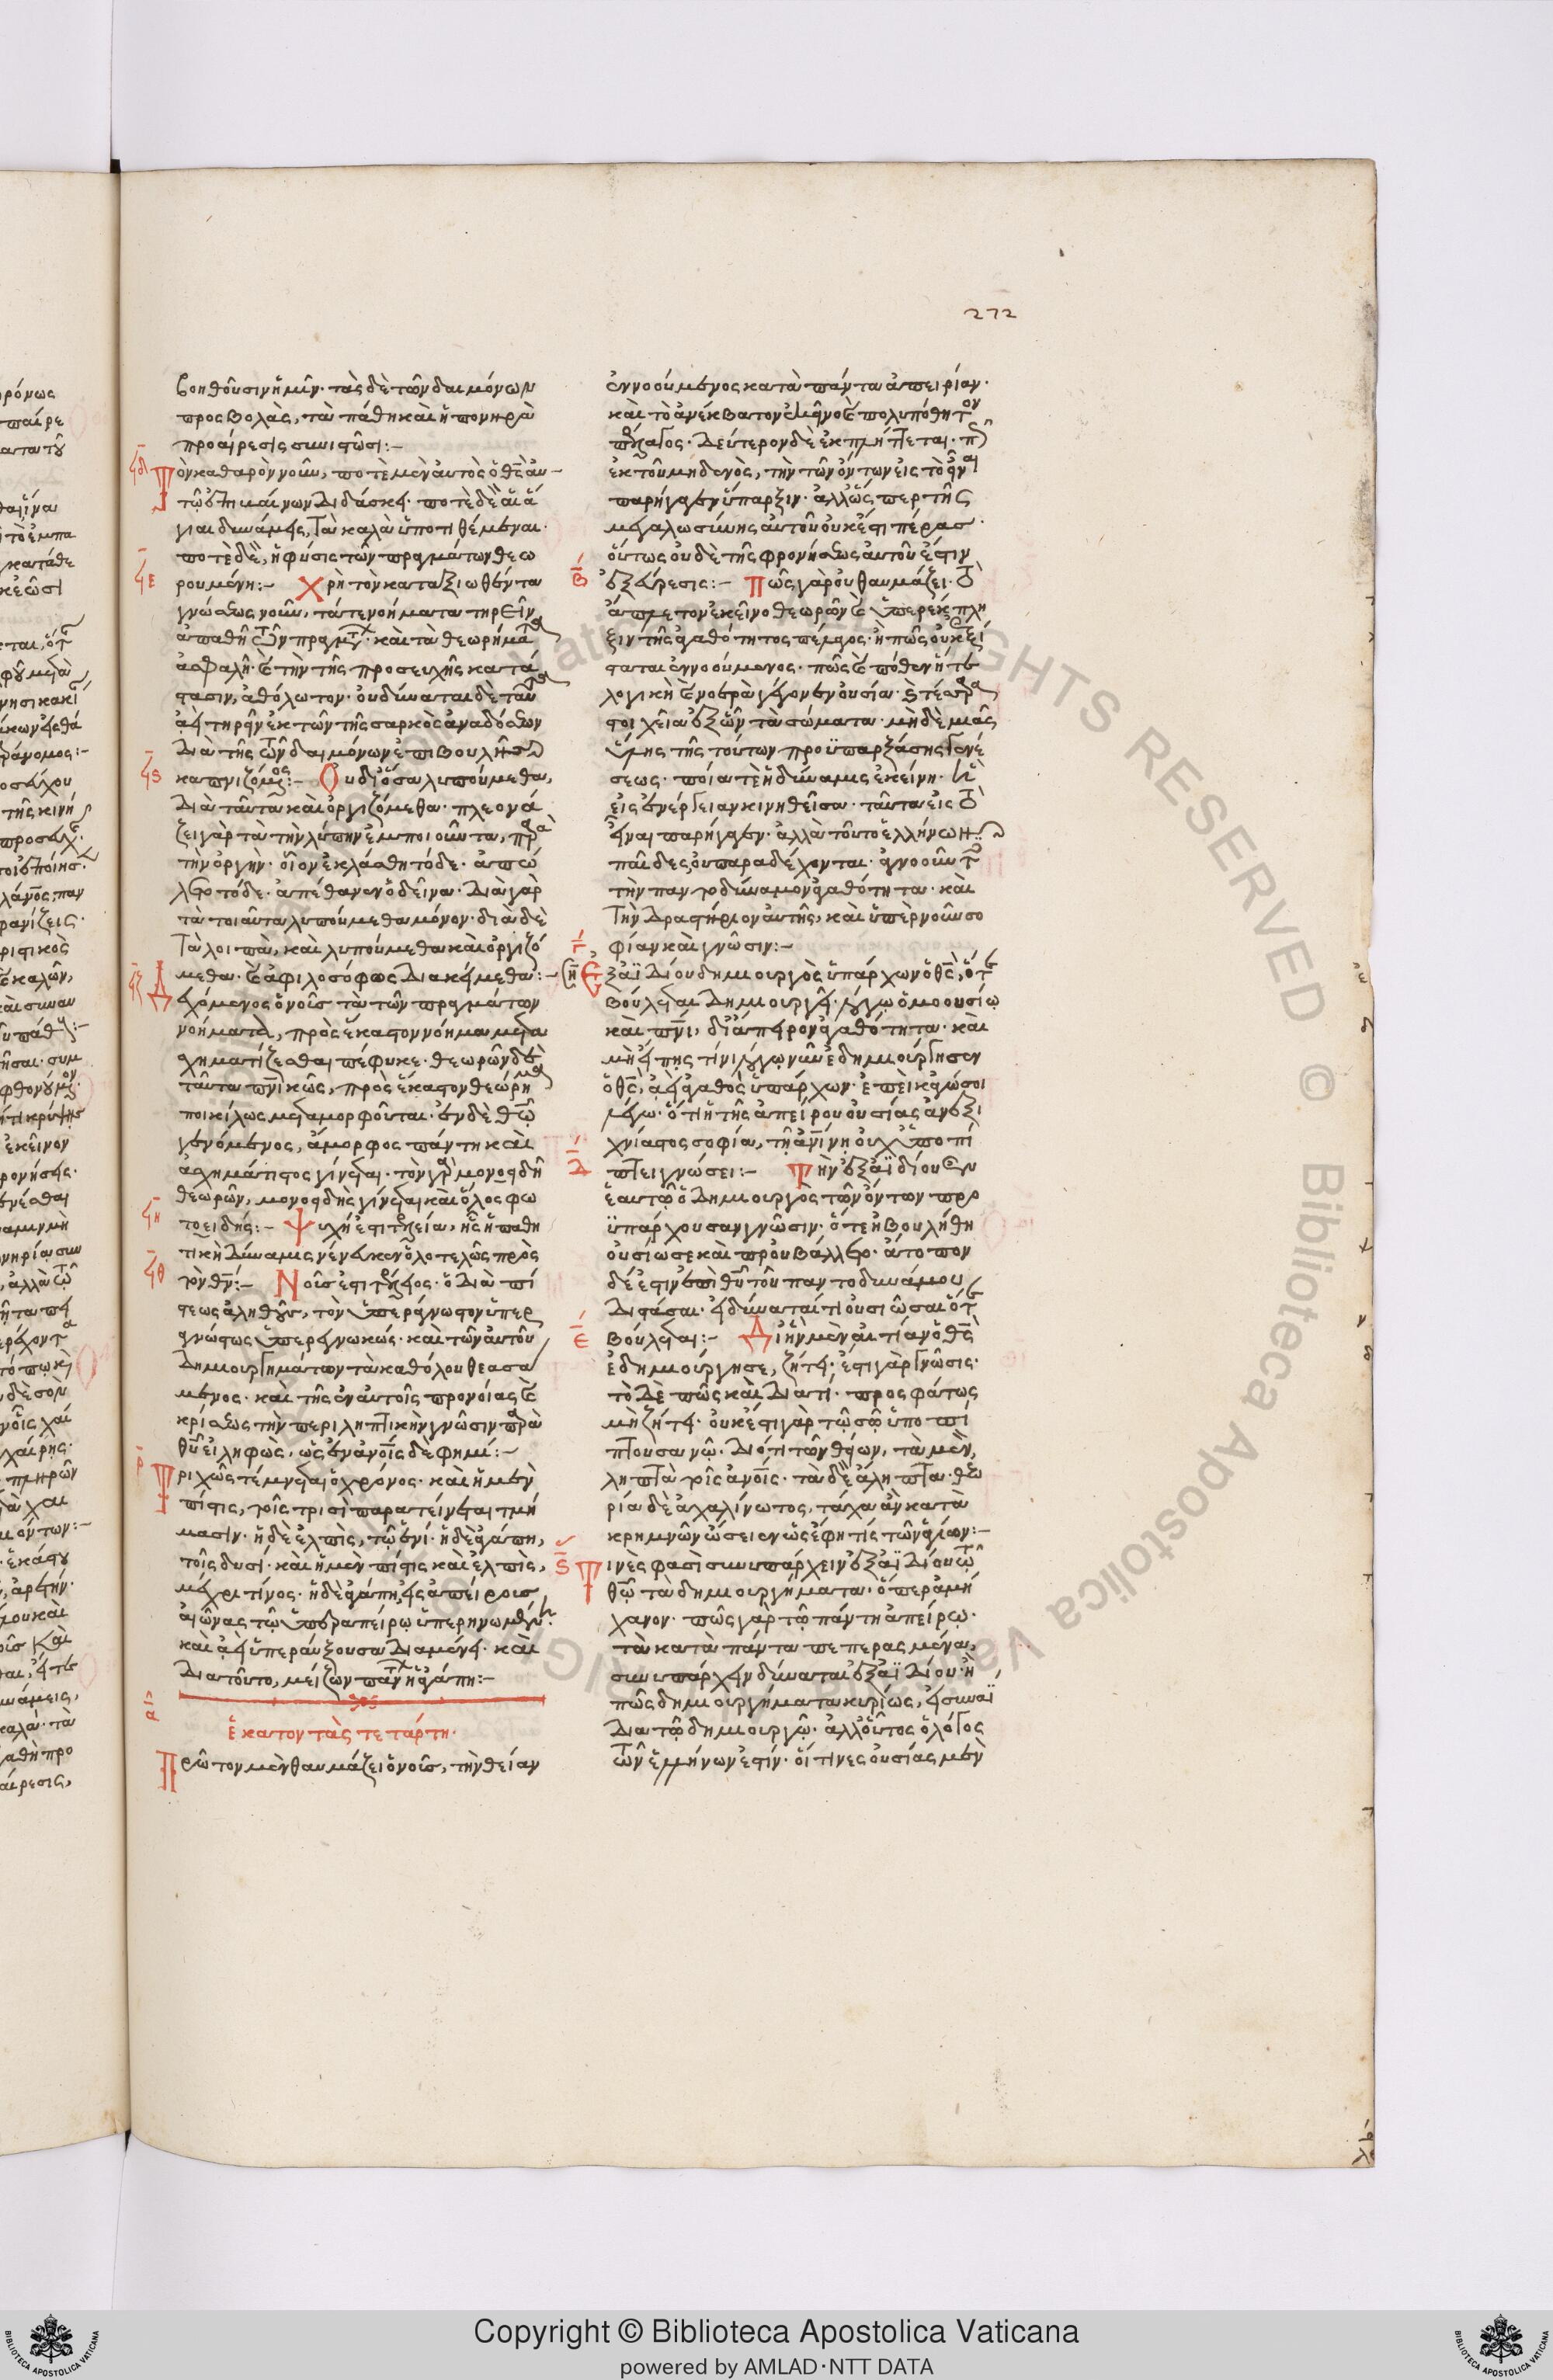 272
βοηθοῦσιν ἡμῖν· τὰς δὲ τῶν δαιμόνων
προσβολὰς, τὰ πάθη καὶ ἡ πονηρὰ
προαίρεσις συνιστῶσι:–
ϟδ Τὸν καθαρὸν νοῦν, ποτὲ μὲν αὐτὸς ὁ θς̅ ἐν
τῷ ἐπιμαίνων διδάσκει· ποτὲ δὲ αἱ ἅ
γιαι δυνάμεις, τὰ καλὰ ὑποτιθέμεναι·
ποτὲ δὲ, ἡ φύσις τῶν πραγμάτων θεω
ϟε ρουμένη:– Χρὴ τὸν καταξιωθέντα
γνώσεως νοῦν, τά τε νοήματα τηρεῖν
ἀπαθῆ τῶν πραγμάτων· καὶ τὰ θεωρήματα
ἀσφαλῆ· καὶ τὴν τῆς προσευχῆς κατά
στασιν, ἀθόλωτον· οὐ δύναται δὲ ταῦτα
ἀεὶ τηρεῖν ἐκ τῶν τῆς σαρκὸς ἀναδόσεων
διὰ τῆς τῶν δαιμόνων ἐπιβουλῆς
ϟς καπνιζόμενος:– Οὐ δι' ὅσα λυπούμεθα,
διὰ ταῦτα καὶ ὀργιζόμεθα· πλεονά
ζει γὰρ τὰ τὴν λύπην ἐμποιοῦντα, παρὰ
τὴν ὀργήν· οἷον ἐκλάσθη τόδε· ἀπώ
λετο τόδε· ἀπέθανεν ὁ δεῖνα· διὰ γὰρ
τὰ τοιαῦτα λυπούμεθα μόνον· διὰ δὲ
τὰ λοιπὰ, καὶ λυπούμεθα καὶ ὀργιζό
μεθα· καὶ ἀφιλοσόφως διακείμεθα:–
ϟζ Δεχόμενος ὁ νοῦς τὰ τῶν πραγμάτων
νοήματα, πρὸς ἕκαστον νόημα μετα
σχηματίζεσθαι πέφυκε· θεωρῶν δὲ
ταῦτα πνικῶς, πρὸς ἕκαστον θεώρημα
ποικίλως μεταμορφοῦται· ἐν δὲ θῶ
γενόμενος, ἄμορφος πάντη καὶ
ἀσχημάτιστος γίνεται· τὸν γὰρ μονοειδῆ
θεωρῶν, μονοειδὴς γίνεται καὶ ὅλος φω
ϟη τοειδής:– Ψυχή ἐστι τελεία, ἧς ἡ παθη
τικὴ δύναμις νένευκεν ὁλοτελῶς πρὸς
ϟθ τὸν θν̅:– Νοῦς ἐστι τέλειος· ὁ διὰ πί
στεως ἀληθοῦς, τὸν ὑπεράγνωστον ὑπερ
αγνώστως ὑπερεγνωκώς· καὶ τῶν αὐτοῦ
δημιουργημάτων τὰ καθόλου θεασά
μενος· καὶ τῆς ἐν αὐτοῖς προνοίας καὶ
κρίσεως τὴν περιληπτικὴν γνῶσιν παρὰ
θυ̅ εἰληφὼς, ὡς ἐν ἀνοις δέ φημι:–
ρ Τριχῶς τέμνεται ὁ χρόνος· καὶ ἡ μὲν
πίστις, τοῖς τρισὶ παρατείνεται τμή
μασιν· ἡ δὲ ἐλπὶς, τῷ ἑνί· ἡ δὲ ἀγάπη,
τοῖς δυσί· καὶ ἡ μὲν πίστις καὶ ἐλπὶς,
μέχρι τίνος· ἡ δὲ ἀγάπη, εἰς ἀπείρους
αἰῶνας τῷ ὑπεραπείρῳ ὑπερηνωμένη
καὶ ἀεὶ ὑπεραύξουσα διαμένει· καὶ
διὰ τοῦτο, μείζων πάντων ἡ ἀγάπη:–
ἑκατοντὰς τετάρτη·
α Πρῶτον μὲν θαυμάζει ὁ νοῦς, τὴν θείαν
ἐννοούμενος κατὰ πάντα ἀπειρίαν·
καὶ τὸ ἀνέκβατον ἐκεῖνο καὶ πολυπόθητον
πέλαγος· δεύτερον δὲ ἐκπλήττεται· πῶς
ἐκ τοῦ μηδενὸς, τὴν τῶν ὄντων εἰς τὸ εἶναι
παρήγαγεν ὕπαρξιν· ἀλλ' ὥσπερ τῆς
μεγαλωσύνης αὐτοῦ οὐκ ἔστι πέρας·
οὕτως οὐδὲ τῆς φρονήσεως αὐτοῦ ἐστιν
β ἐξεύρεσις:– Πῶς γὰρ οὐ θαυμάζει τὸ
ἄπλετον ἐκεῖνο θεωρῶν καὶ ὑπερέκπλη
ξιν τῆς ἀγαθότητος πέλαγος· ἢ πῶς οὐκ ἐξί
σταται ἐννοούμενος· πῶς καὶ πόθεν ἥ τε
λογικὴ καὶ νοερὰ γέγονεν οὐσία· καὶ τέσσαρα
στοιχεῖα ἐξ ὧν τὰ σώματα· μηδεμιᾶς
ὕλης τῆς τούτων προϋπαρξάσης γενέ
σεως· ποία τε ἡ δύναμις ἐκείνη· ἡ
εἰς ἐνέργειαν κινηθεῖσα· ταῦτα εἰς τὸ
εἶναι παρήγαγεν· ἀλλὰ τοῦτο ἑλλήνων
παῖδες οὐ παραδέχονται· ἀγνοοῦντες
τὴν παντοδύναμον ἀγαθότητα· καὶ
τὴν δραστήριον αὐτῆς, καὶ ὑπὲρ νοῦν σο
γ φίαν καὶ γνῶσιν:–
Ἐξ ἀϊδίου δημιουργὸς ὑπάρχων ὁ θς̅, ὅτε
βούλεται δημιουργεῖ· λόγῳ ὁμοουσίῳ
καὶ πνι, δι' ἄπειρον ἀγαθότητα· καὶ
μὴ εἴπῃς τίνι λόγῳ νῦν ἐδημιούργησεν
ὁ θς̅, ἀεὶ ἀγαθὸς ὑπάρχων· ἐπεὶ κἀγώ σοι
λέγω· ὅτι ἡ τῆς ἀπείρου οὐσίας ἀνεξι
χνίαστος σοφία, τῇ ἀνίνῃ οὐχ ὑποπί
δ πτει γνώσει:– Τὴν ἐξ ἀϊδίου ἐν
ἑαυτῷ ὁ δημιουργὸς τῶν ὄντων προ
ϋπάρχουσαν γνῶσιν· ὅτε ἠβουλήθη
οὐσίωσε καὶ προυβάλλετο· ἄτοπον
δέ ἐστιν ἐπὶ θυ̅ τοῦ παντοδυνάμου
διστάσαι· εἰ δύναταί τι οὐσιῶσαι ὅτε
ε βούλεται:– Δι' ἣν μὲν αἰτίαν ὁ θς̅
ἐδημιούργησε, ζήτει· ἔστι γὰρ γνῶσις·
τὸ δὲ πῶς καὶ διατί· προσφάτως
μὴ ζήτει· οὐκ ἔστι γὰρ τῷ σῷ ὑποπί
πτουσα νῷ· διότι τῶν θείων, τὰ μὲν,
ληπτὰ τοῖς ἀνοις· τὰ δὲ ἄληπτα· θεω
ρία δὲ ἀχαλίνωτος, τάχα ἂν κατὰ
κρημνῶν ὤσειεν ὡς ἔφη τίς τῶν ἁγίων:–
ς Τινὲς φασὶ συνυπάρχειν ἐξ ἀϊδίου τῷ
θῶ τὰ δημιουργήματα· ὅπερ ἀμή
χανον· πῶς γὰρ τῷ πάντη ἀπείρῳ·
τὰ κατὰ πάντα πεπερασμένα,
συνυπάρχειν δύναται ἐξ ἀϊδίου· ἢ
πῶς δημιουργήματα κυρίως, εἰ συναΐ
δια τῷ δημιουργῷ· ἀλλ' οὗτος ὁ λόγος
τῶν ἑλλήνων ἐστίν· οἵ τινες οὐσίας μὲν
Copyright © Biblioteca Apostolica Vaticana
powered by AMLAD·NTT DATA